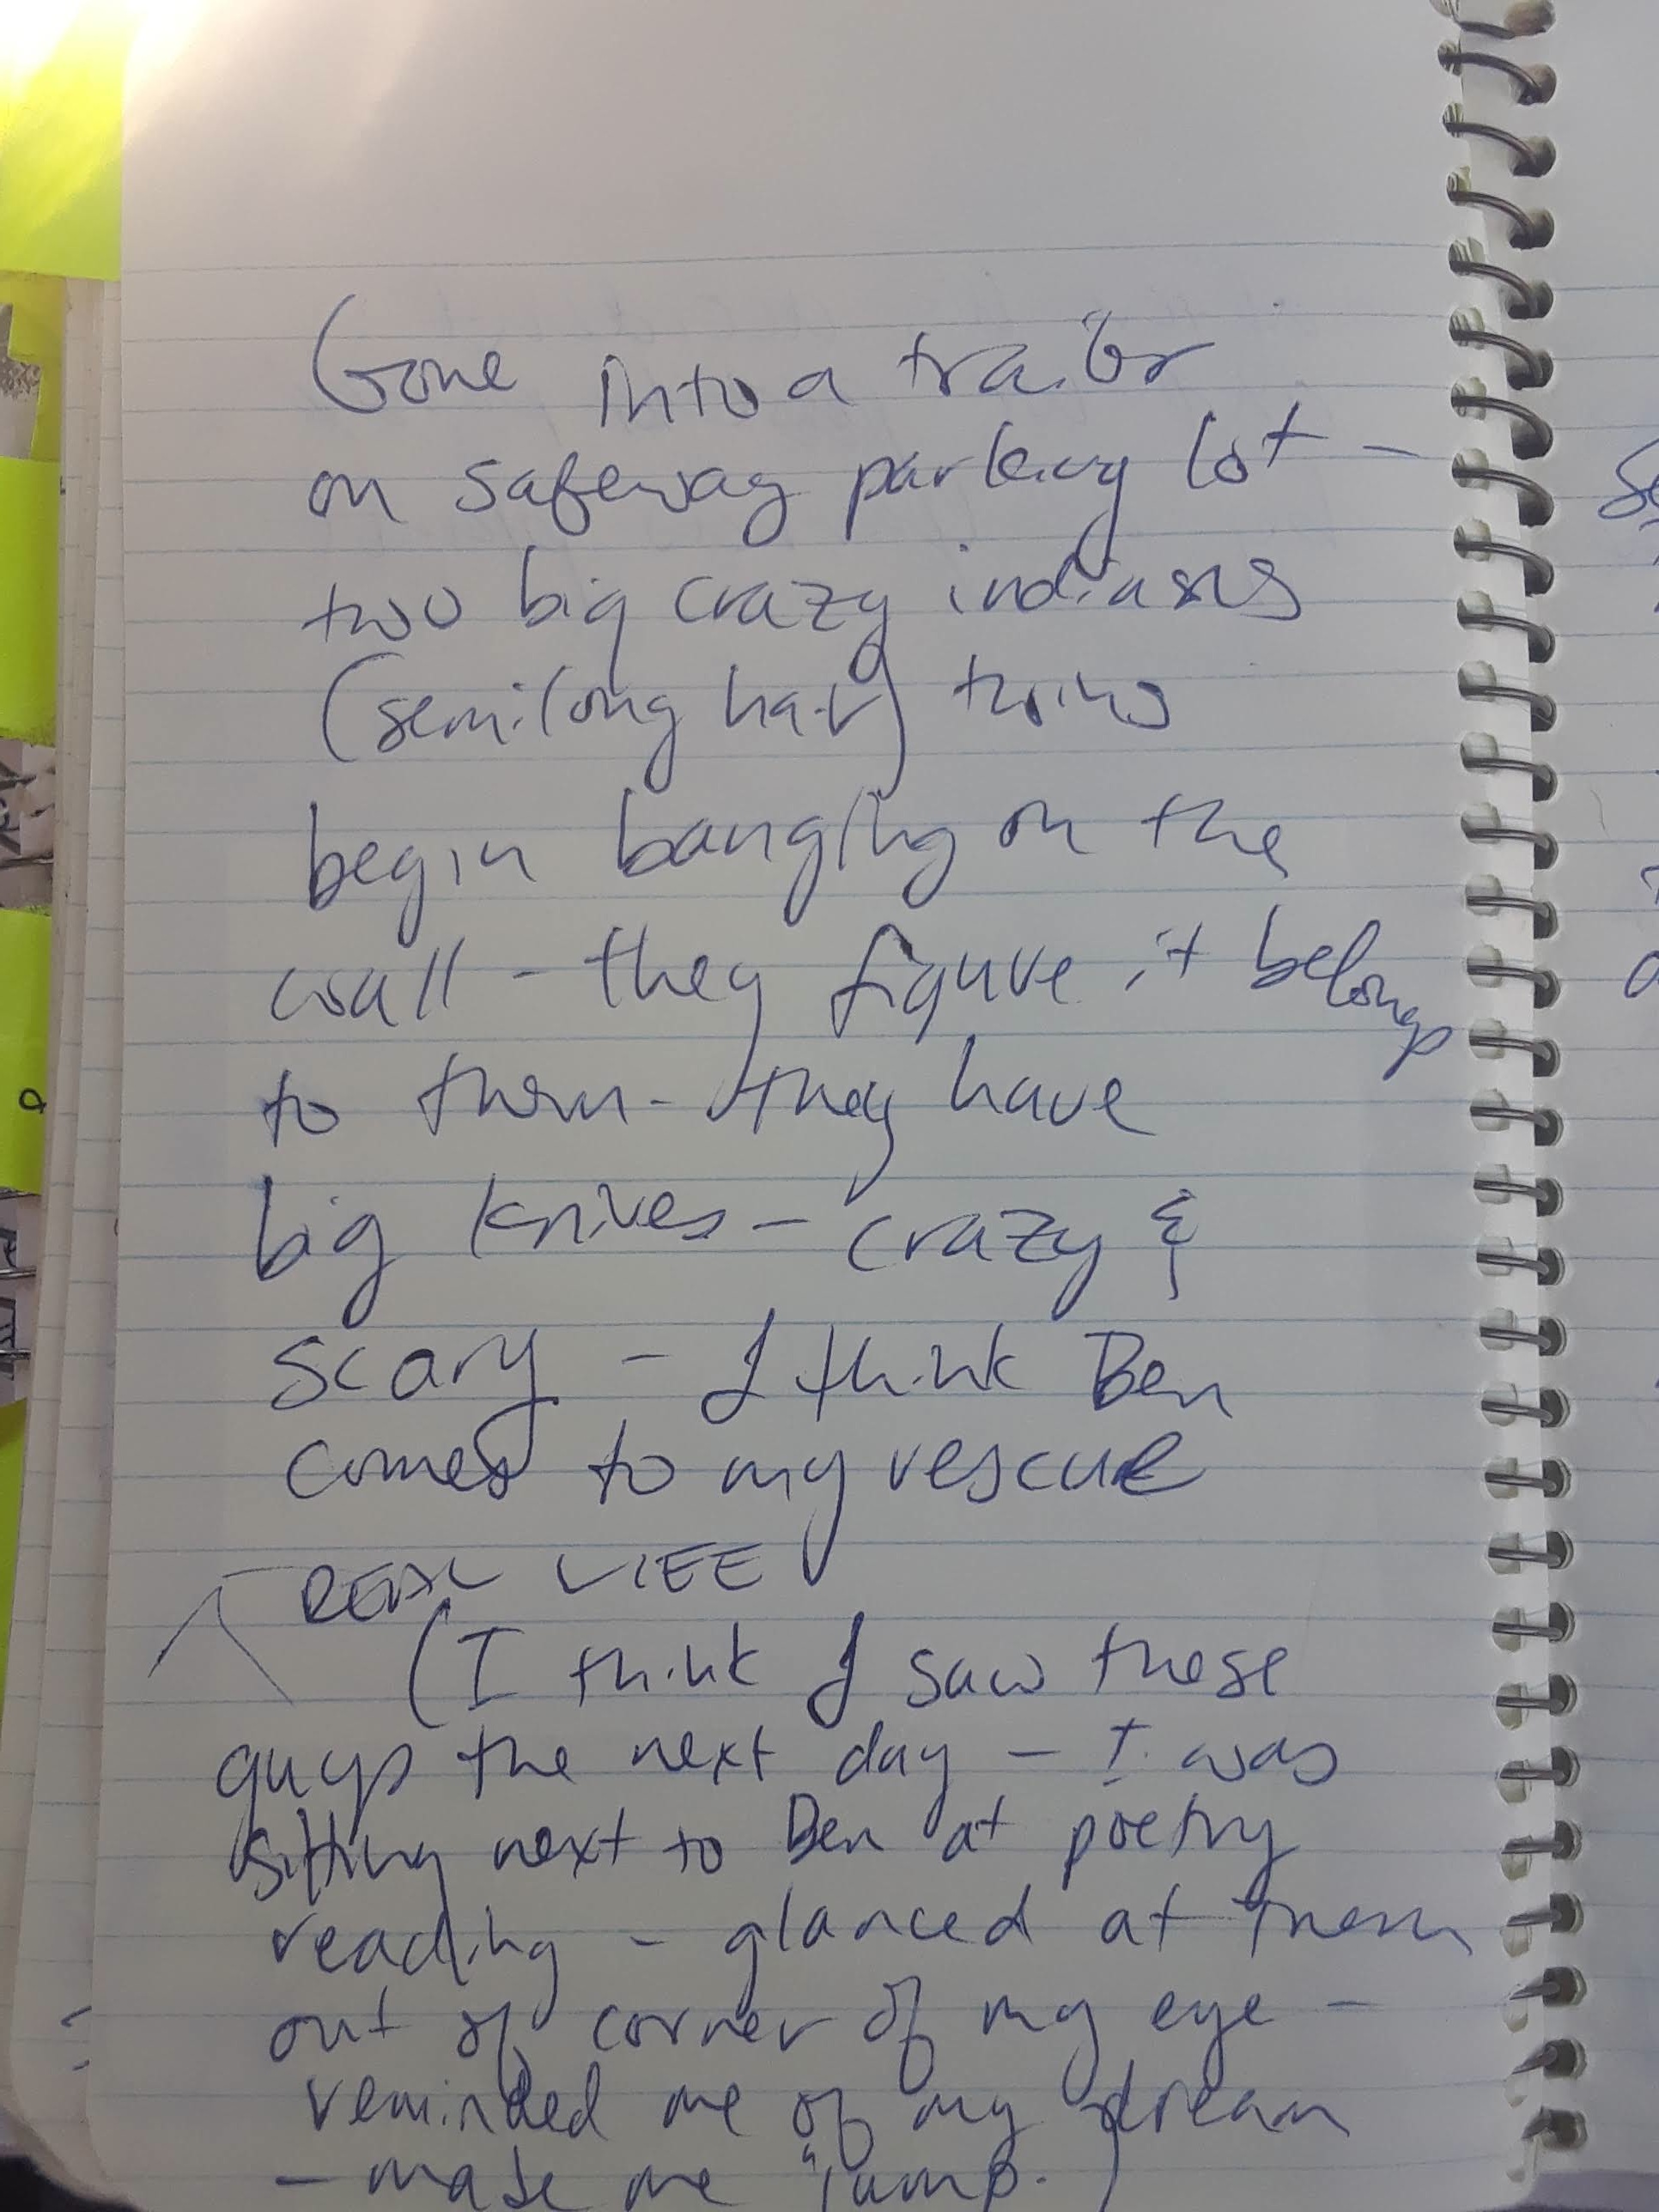 Gone into a trailer
on safeway parking lot -
two big crazy indians
(semilong hair) twins
begin banging on the
wall - they figure it belongs
to them - they have
big knives - crazy &
scary - I think Ben
comes to my rescue
REAL LIFE
(I think I saw these
guys the next day - I was
sitting next to Ben at poetry
reading - glanced at them
out of corner of my eye -
reminded me of my dream
- made me jump.)